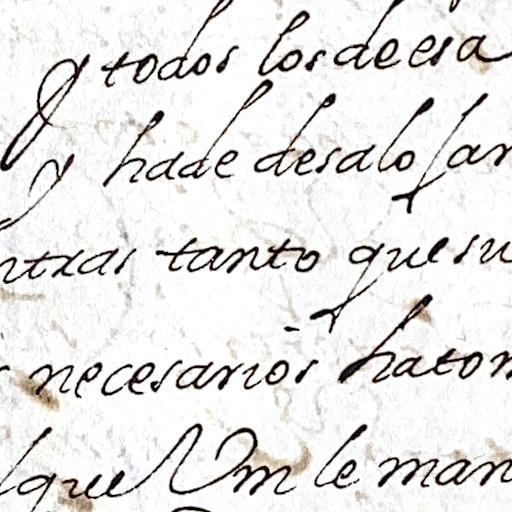 y todos los de esa
y ha de desalo san
ntras tanto que su
s necesarios ha tom
l que Vm le man